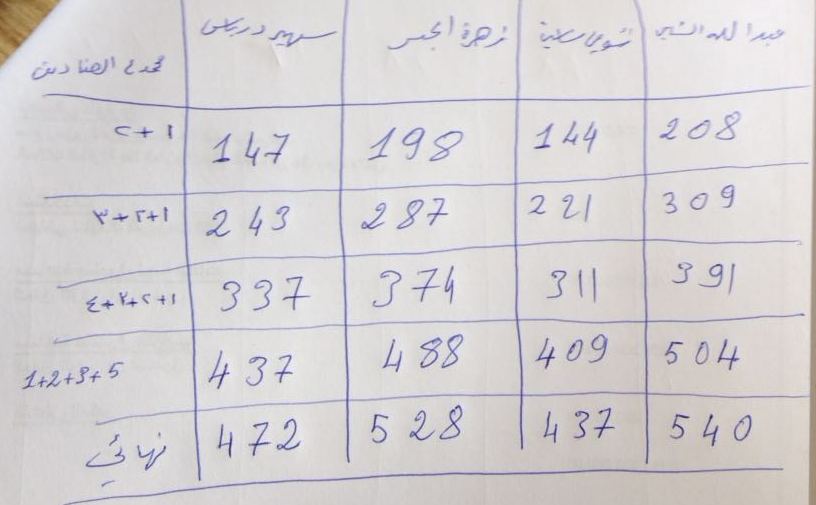 عبد الله الشي شوقي سلامة زهرة الجس سهير دريس مجموع الصناديق
208 144 198 147 ١+٢
309 221 287 243 ١+٢+٣
391 311 374 337 ١+٢+٣+٤
504 409 488 437 1+2+3+5
540 437 528 472 نهائي